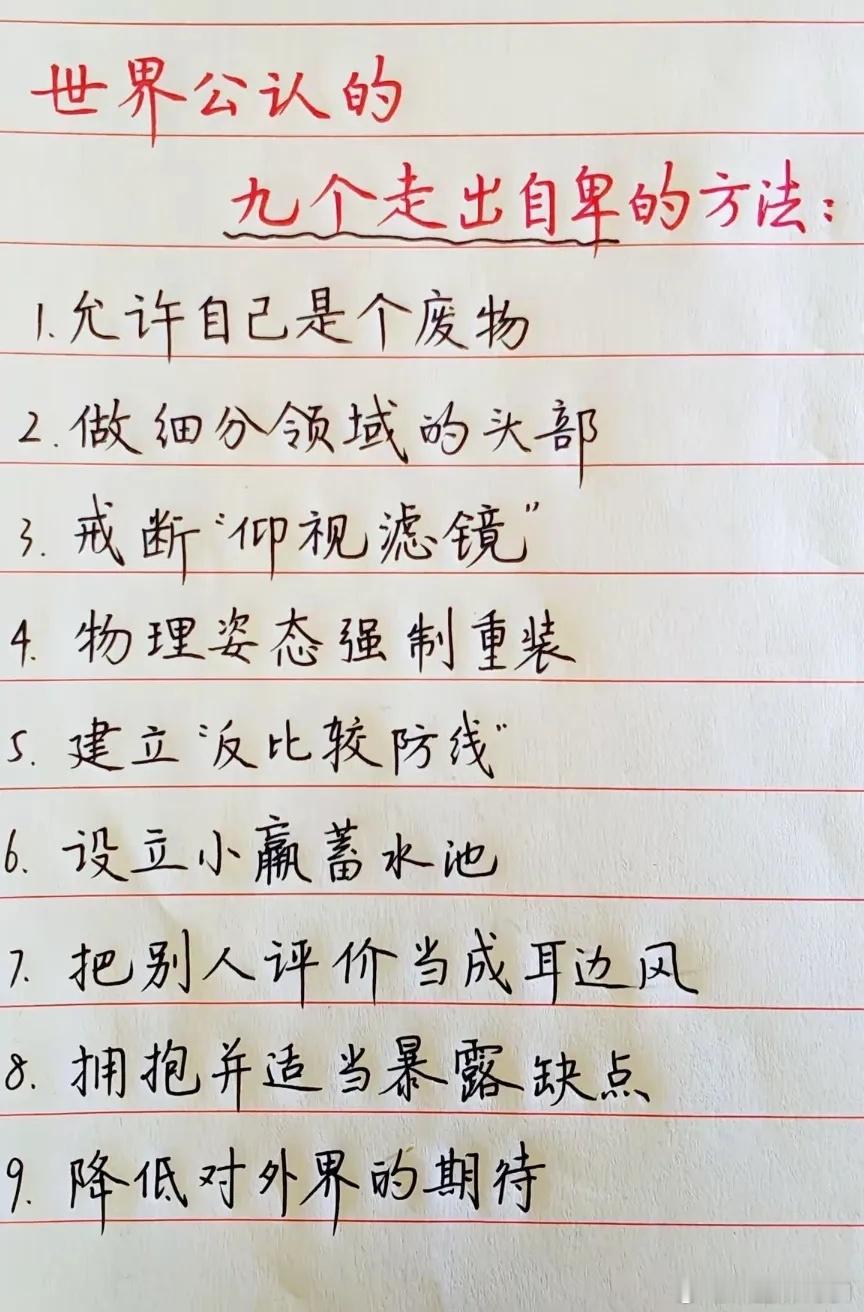 世界公认的
九个走出自卑的方法:
1.允许自己是个废物
2.做细分领域的头部
3.戒断“仰视滤镜”
4.物理姿态强制重装
5.建立“反比较防线”
6.设立小赢蓄水池
7.把别人评价当成耳边风
8.拥抱并适当暴露缺点
9.降低对外界的期待